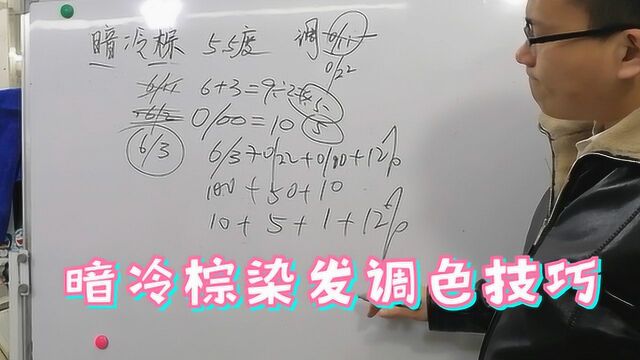 暗冷棕 5.5度 调 0/11
0/22
6/11 6+3=9÷2=4.5
6/2 0/00=10 5
6/3 6/3+0/22+0/00+12%
100+50+10
10+5+1+12%
暗冷棕染发调色技巧